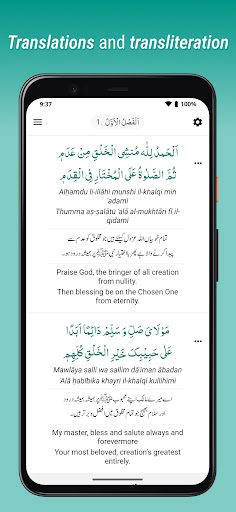 Translations and transliteration
9:37
100%
1. اَلْفَصْلُ الْاَوَّلُ
اَلْحَمْدُ لِلّٰهِ مُنْشِى الْخَلْقِ مِنْ عَدَمِ
ثُمَّ الصَّلٰوةُ عَلَى الْمُخْتَارِ فِى الْقِدَمِ
Alḥamdu li-illāhi munshi il-khalqi min
ʿadami
Thumma aṣ-ṣalātu ʿalā al-mukhtāri fī il-
qidami
Praise God, the bringer of all creation
from nullity.
Then blessing be on the Chosen One
from eternity.
مَوْلَاىَ صَلِّ وَ سَلِّمْ دَائِمًا اَبَدًا
عَلٰى حَبِيْبِكَ خَيْرِ الْخَلْقِ كُلِّهِمِ
Mawlāya ṣalli wa sallim dāʾiman ābadan
Alā ḥabībika khayri il-khalqi kullihimi
My master, bless and salute always and
forevermore
Your most beloved, creation's greatest
entirely.